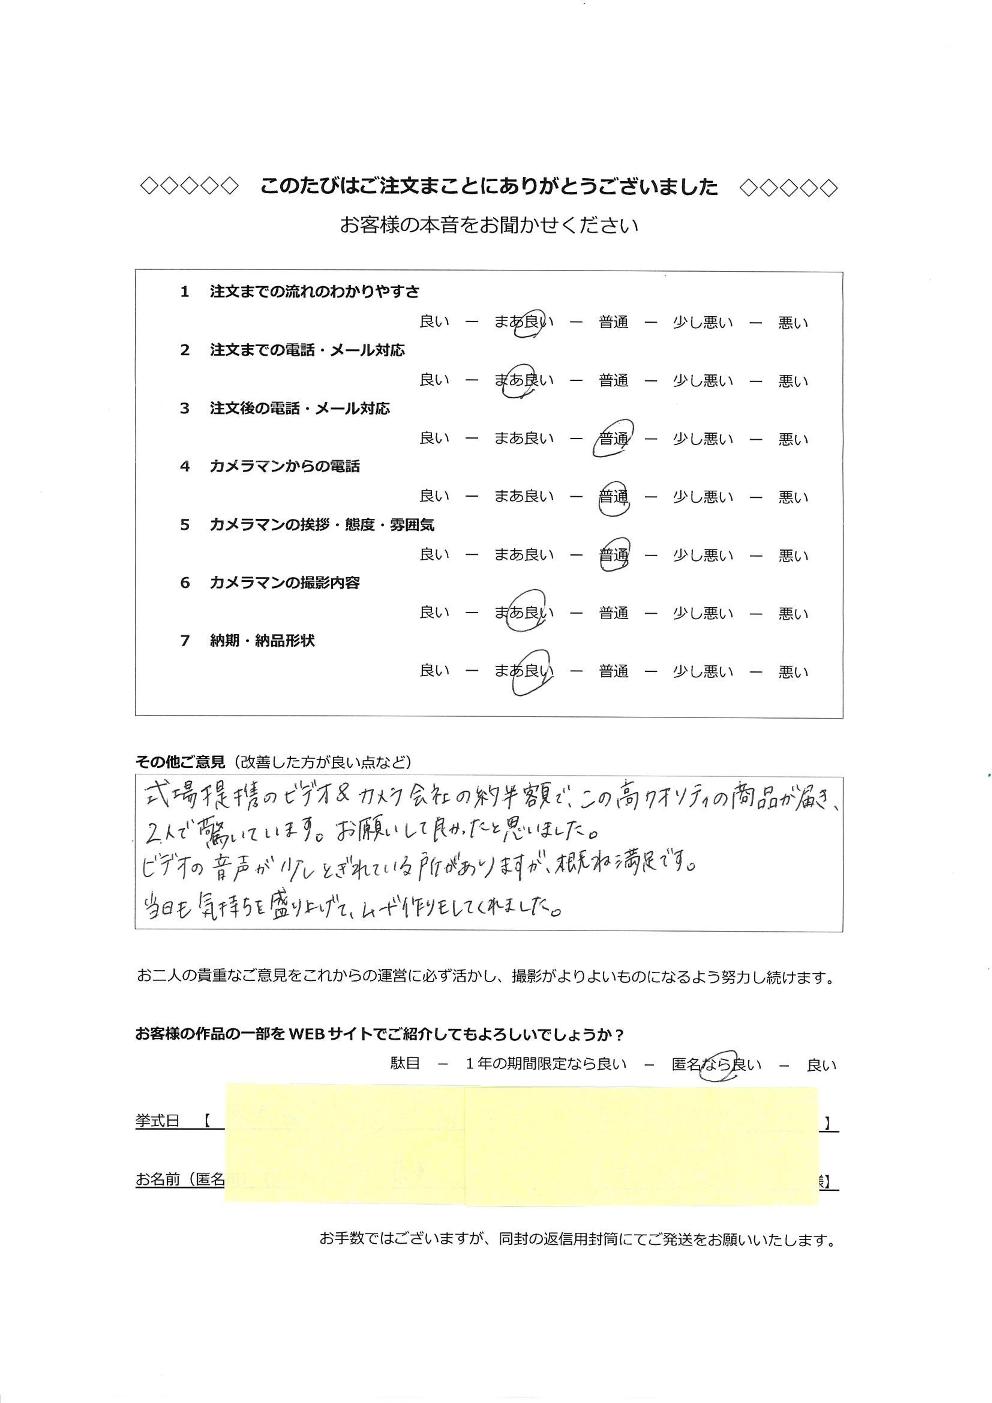 ◇◇◇◇◇ このたびはご注文まことにありがとうございました ◇◇◇◇◇
お客様の本音をお聞かせください
1 注文までの流れのわかりやすさ
良い － まあ良い － 普通 － 少し悪い － 悪い
2 注文までの電話・メール対応
良い － まあ良い － 普通 － 少し悪い － 悪い
3 注文後の電話・メール対応
良い － まあ良い － 普通 － 少し悪い － 悪い
4 カメラマンからの電話
良い － まあ良い － 普通 － 少し悪い － 悪い
5 カメラマンの挨拶・態度・雰囲気
良い － まあ良い － 普通 － 少し悪い － 悪い
6 カメラマンの撮影内容
良い － まあ良い － 普通 － 少し悪い － 悪い
7 納期・納品形状
良い － まあ良い － 普通 － 少し悪い － 悪い
その他ご意見（改善した方が良い点など）
式場提携のビデオ&カメラ会社の約半額で、この高クオリティの商品が届き、
2人で驚いています。お願いして良かったと思いました。
ビデオの音声が少しとぎれている所がありますが、概ね満足です。
当日も気持ちを盛り上げて、ムード作りをしてくれました。
お二人の貴重なご意見をこれからの運営に必ず活かし、撮影がよりよいものになるよう努力し続けます。
お客様の作品の一部をWEBサイトでご紹介してもよろしいでしょうか？
駄目 － 1年の期間限定なら良い － 匿名なら良い － 良い
挙式日 【 】
お名前（匿名 様】
お手数ではございますが、同封の返信用封筒にてご発送をお願いいたします。